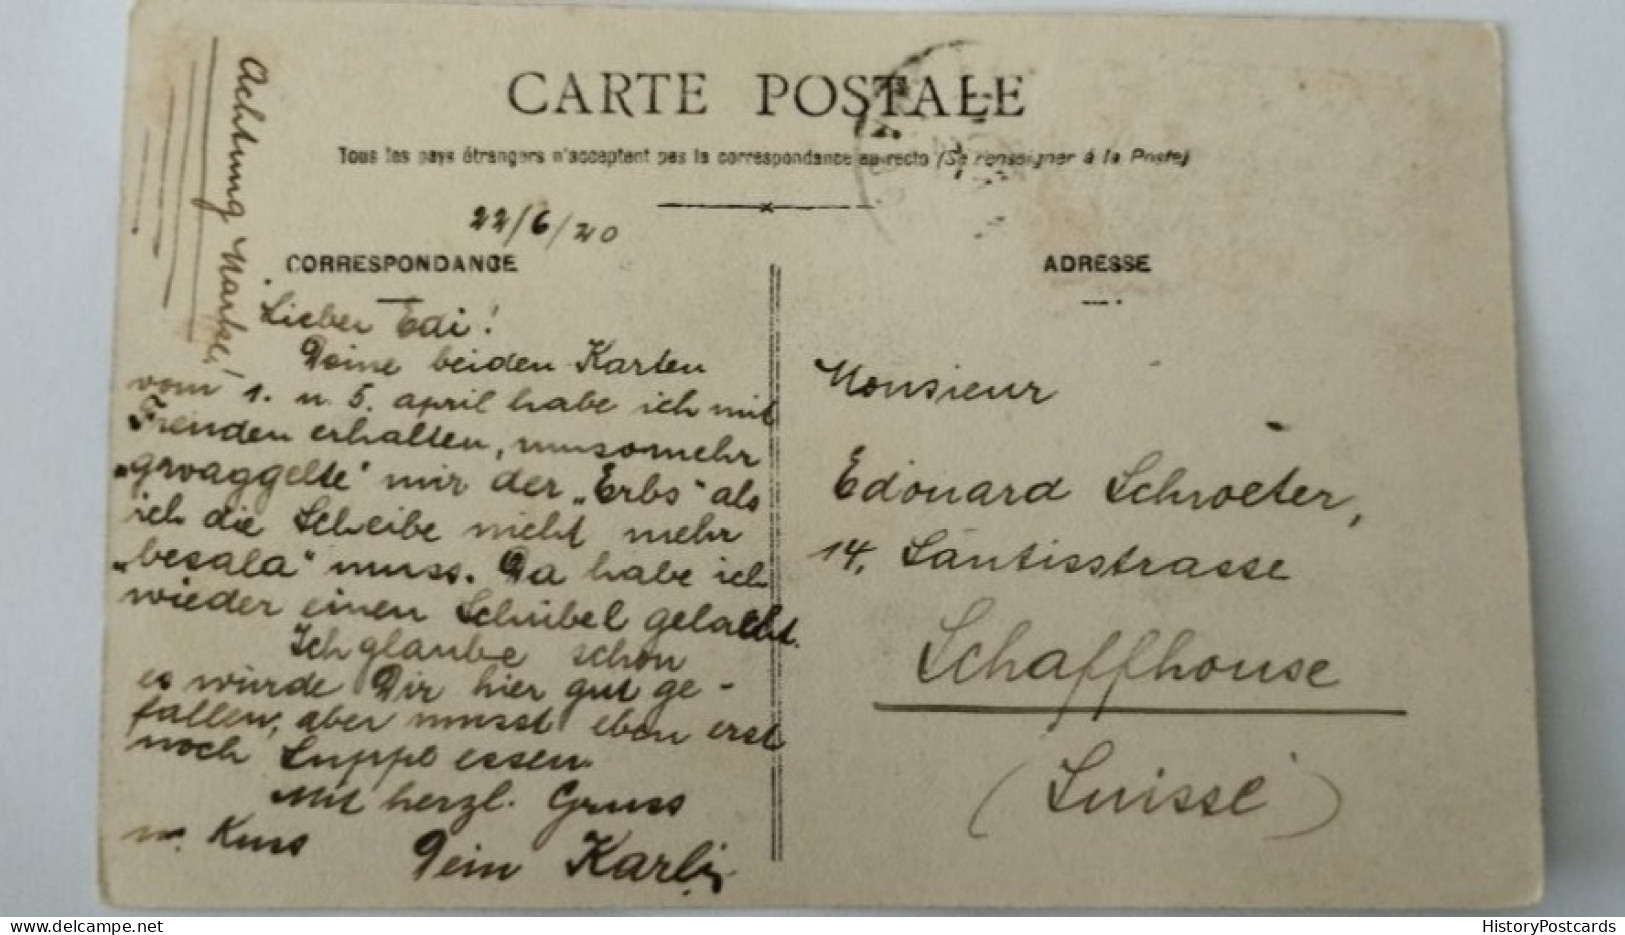 CARTE POSTALE
Tous les pays étrangers n'acceptent pas la correspondance au recto (Se renseigner à la Poste)
Achtung Marke!
22/6/20
CORRESPONDANCE
Lieber Edi!
Deine beiden Karten
vom 1. u. 5. april habe ich mit
Freuden erhalten, umsomehr
„gwaggelte" mir der „Erbs" als
ich die Scheibe nicht mehr
„besala" muss. Da habe ich
wieder einen Schübel gelacht.
Ich glaube schon
es würde Dir hier gut ge-
fallen, aber musst eben erst
noch Suppe essen.
Mit herzl. Gruss
u. Kuss
Dein Karli
ADRESSE
Monsieur
Edouard Schroeter,
14, Säntisstrasse
Schaffhouse
(Suisse)
delcampe.net
HistoryPostcards